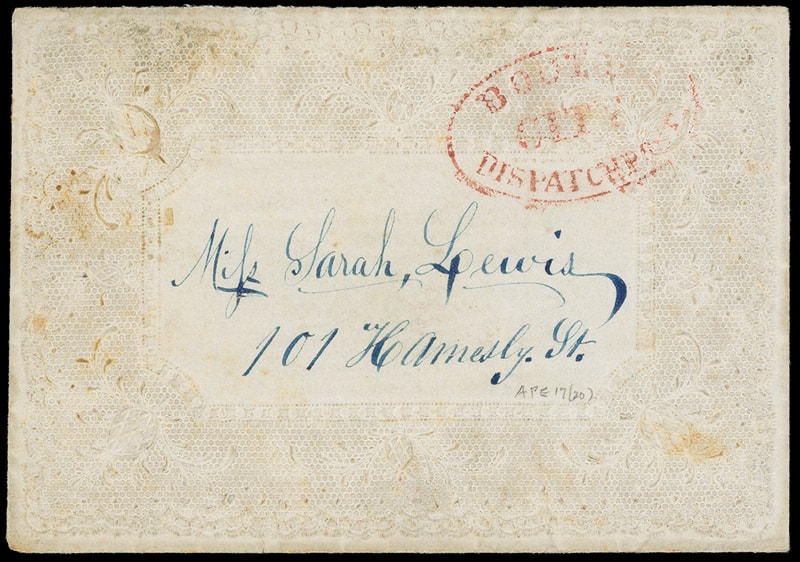 CITY
DISPATCH
Miſs Sarah, Lewis
101 Hamesly. St.
APE 17(20)